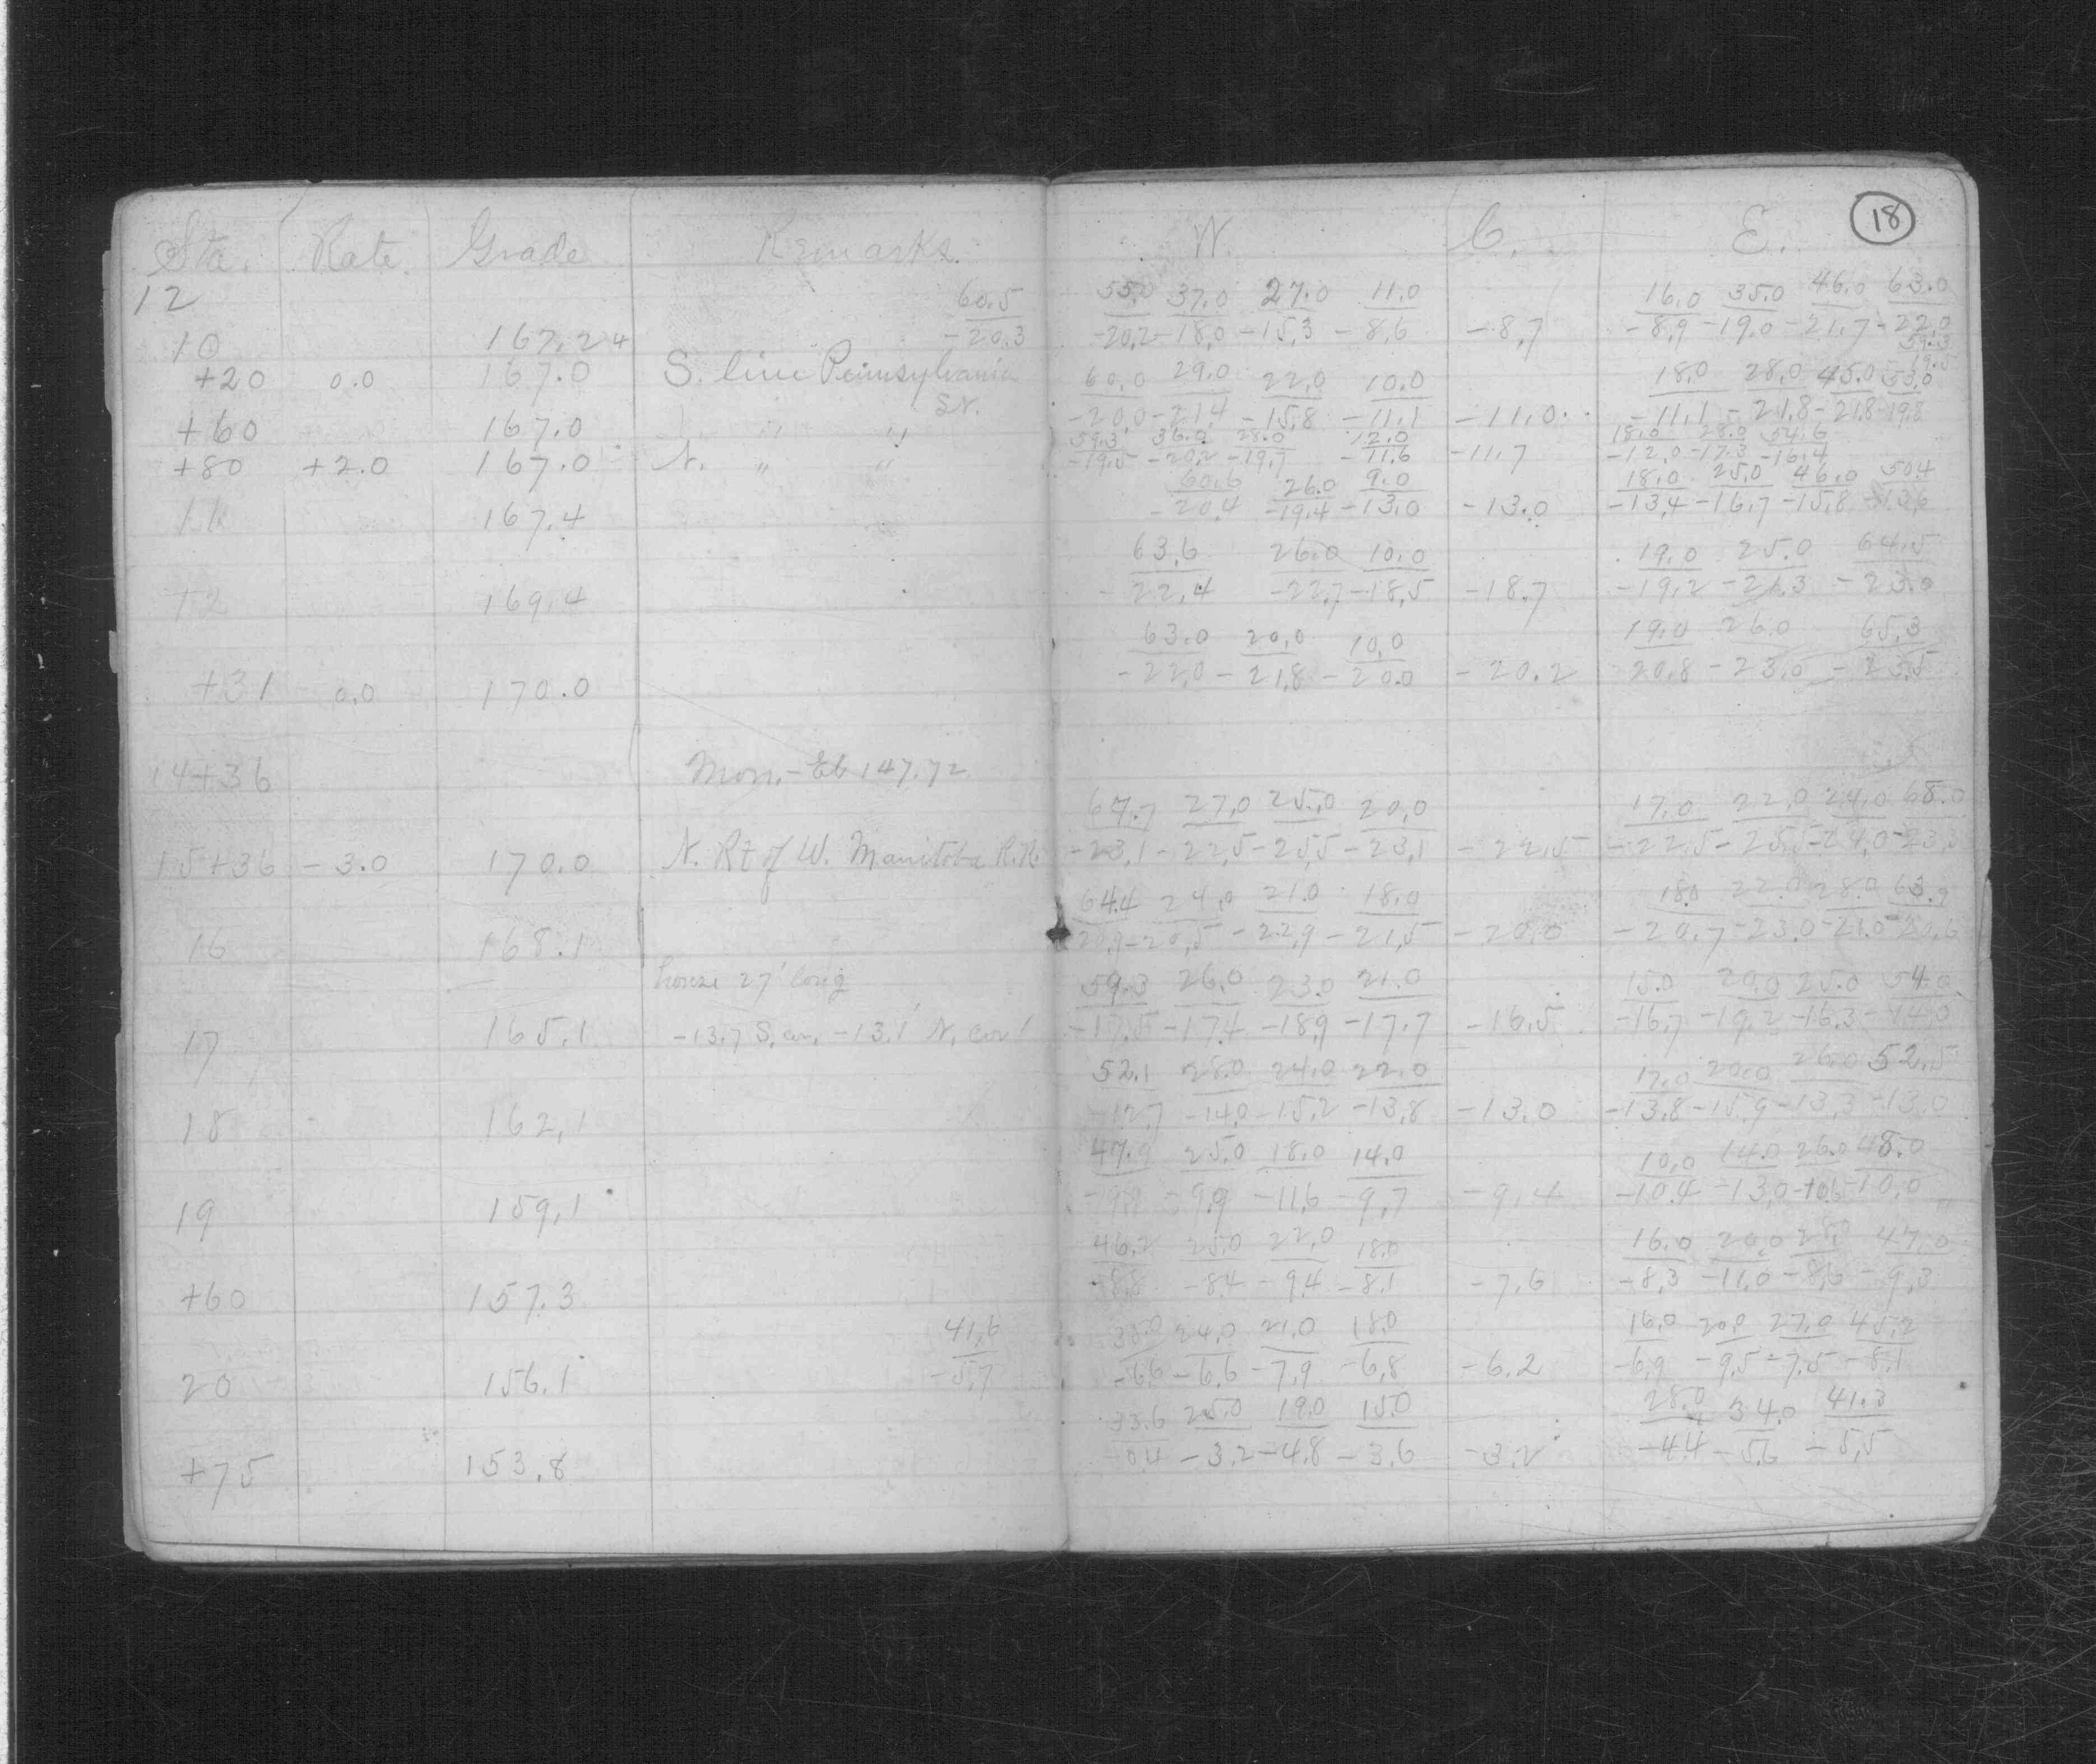 18
Sta. Rate. Grade Remarks. W. C. E.
12
60.5 55.0 37.0 27.0 11.0 16.0 35.0 46.0 63.0
10 167.24 -20.3 -20.2 -18.0 -15.3 -8.6 -8.7 -8.9 -19.0 -21.7 -22.0
59.3
19.5
60.0 29.0 22.0 10.0 18.0 28.0 45.0 53.0
+20 0.0 167.0 S. line Pennsylvania St. -20.0 -21.4 -15.8 -11.1 -11.0 -11.1 -21.8 -21.8 -19.8
59.3 36.0 28.0 12.0 18.0 28.0 54.6
+60 167.0 " " -19.5 -20.2 -19.7 -11.6 -11.7 -12.0 -17.3 -16.4
60.6 26.0 9.0 18.0 25.0 46.0 50.4
+80 +2.0 167.0 N. " " -20.4 -19.4 -13.0 -13.0 -13.4 -16.7 -15.8
11 167.4
63.6 26.0 10.0 19.0 25.0 64.5
12 169.4 -22.4 -22.7 -18.5 -18.7 -19.2 -21.3 -23.0
63.0 20.0 10.0 19.0 26.0 65.3
+31 0.0 170.0 -22.0 -21.8 -20.0 -20.2 20.8 -23.0 -23.5
14+36 Mon. - El 147.72
64.7 27.0 25.0 20.0 17.0 22.0 24.0 68.0
15+36 -3.0 170.0 N. Rt of W. Manitoba R.R. -23.1 -22.5 -25.5 -23.1 -22.5 -22.5 -25.5 -24.0 -23.3
64.4 24.0 21.0 18.0 18.0 22.0 28.0 63.9
16 168.1 20.9 -20.5 -22.9 -21.5 -20.0 -20.7 -23.0 -21.0 -20.6
house 27' long 59.3 26.0 23.0 21.0 15.0 20.0 25.0 54.0
17 165.1 -13.7 S. cor. -13.1 N. cor -17.5 -17.4 -18.9 -17.7 -16.5 -16.7 -19.2 -16.3 -14.0
52.1 28.0 24.0 22.0 17.0 20.0 26.0 52.5
18 162.1 -12.7 -14.0 -15.2 -13.8 -13.0 -13.8 -15.9 -13.3 -13.0
47.9 25.0 18.0 14.0 10.0 14.0 26.0 48.0
19 159.1 -9.9 -11.6 -9.7 -9.4 -10.4 -13.0 -10.6 -10.0
46.2 25.0 22.0 18.0 16.0 20.0 28.0 47.0
+60 157.3 -8.8 -8.4 -9.4 -8.1 -7.6 -8.3 -11.0 -8.6 -9.3
41.6 38.0 24.0 21.0 18.0 16.0 20.0 27.0 45.2
20 156.1 -5.7 -6.6 -6.6 -7.9 -6.8 -6.2 -6.9 -9.5 -7.5 -8.1
33.6 25.0 19.0 15.0 28.0 34.0 41.3
+75 153.8 0.4 -3.2 -4.8 -3.6 -3.2 -4.4 -5.6 -5.5